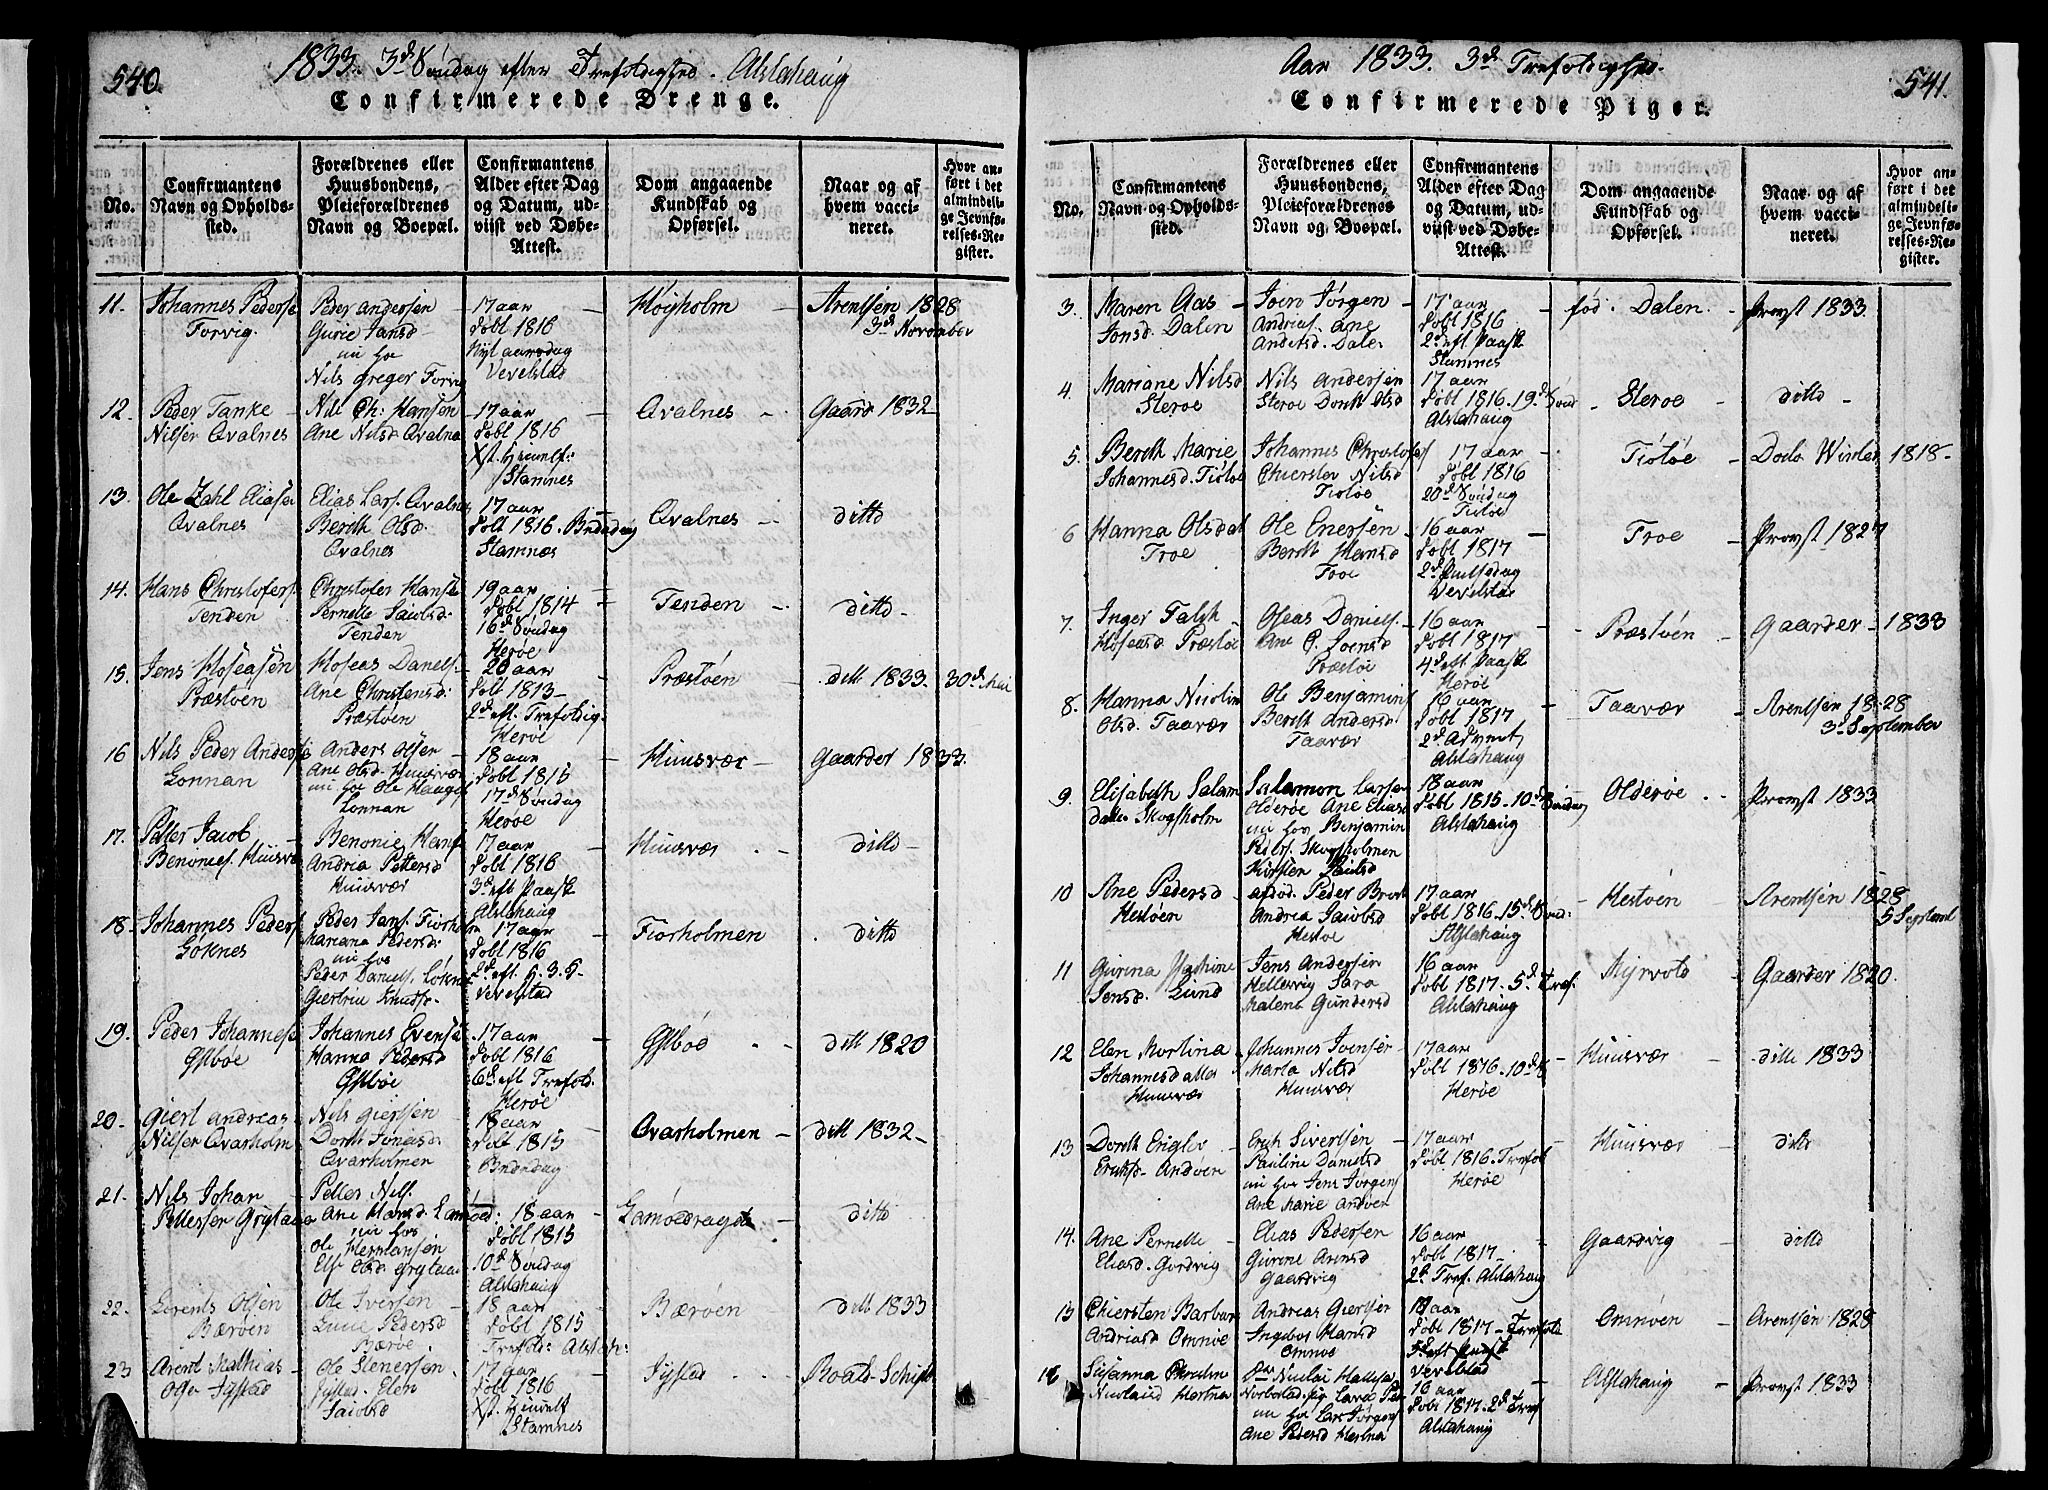 540.
1833. 3d Søndag efter Trefoldighed. Alstahaug
Confirmerede Drenge.
No.
Confirmantens Navn og Opholdssted.
Forældrenes eller Huusbondens, Pleieforældrenes Navn og Boepæl.
Confirmantens Alder efter Dag og Datum, udviist ved Døbe-Attest.
Dom angaaende Kundskab og Opførsel.
Naar og af hvem vaccineret.
Hvor anført i det almindelige Jevnførelses-Register.
11. Johannes Peders
Forvig.
Peder Andersen
Gurie Jansd
nu hos
Nils Greger Forvig
17 aar
døbt 1816
Nyt aarsdag
Vevelstad
Høyholm
Arentsen 1828
3d November
12. Peder Tanke
Nilsen Qvalnes
Nils Ch: Hansen
Ane Nilsd Qvalna
17 aar
døbt 1816
Xst. Himmelf:
Stamnes
Qvalnes
Gaard 1832
13. Ole Zahl Eliasen
Qvalnes
Elias Lars. Qvalnes
Berdth Olsd.
Qvalnes
17 aar
døbt 1816. Bededag
Stamnæs
Qvalnes
ditto
14. Hans Christofers.
Tenden
Christofer Hanse
Pernelle Jacobsd:
Tenden
19 aar
døbt 1814
16d Søndag
Herøe
Tenden
ditto
15. Jens Hoseasen
Præstøen
Hoseas Daniels.
Ane Christensd:
Præstøen
20 aar
døbt 1813
2d eft. Trefoldig.
Herøe
Præstøen
ditt 1833. 30d Mai
16 Nils Peder Anders
Lonnan
Anders Olsen
Ane Olsd. Huusvær
nu hos Ole Haagens
Lonnan
18 aar
døbt 1815
17d Søndag
Herøe
Huusvær
Gaarder 1833.
17. Petter Jacob
Benonies. Huusvær
Benonie Hans
Andria Pettersd
Huusvær
17 aar
døbt 1816
3d eft Paaske
Alstahaug
Huusvær
ditto
18. Johannes Peders
Løknes
Peder Jans. Fiorholm
Mariana Pedersd:
nu hos
Peder Daniels. Løkn
Giertru Knuds.
17 aar
døbt 1816
2d eft. H. 3. K.
Vevelstad
Fiorholmen
ditto
19. Peder Johannes
Østbøe
Johannes Evense
Hanna Pedersd
Østbøe
17 aar
døbt 1816
6d eft Trefold.
Herøe
Østbøe
ditt 1820
20. Giert Andreas
Nilsen Qvarholm
Nils Giertsen
Dorth Jonasd
Qvarholmen
18 aar
døbt 1815
Bededag
Qvarholmen
ditt 1832
21. Nils Johan
Pettersen Grytaa
Petter Nils.
Ane Hansd Lamøed:
nu hos
Ole Hermansen
Els Olsd Grytaa
18 aar
døbt 1815
10d Søndag
Alstahaug
Lamøedraget
ditto
22. Lorents Olsen
Bærøen
Ole Iversen
Pedersd
Bærøe
18 aar
døbt 1815
Trefold: Alstah:
Bærøen
ditt 1833
23 Arent Mathias
Ols Sygstad
Ole Stenersen
Elen
Jacobsd
17 aar
døbt 1816
Xst. Himmelf
Stamnes
Roald-Schift
541.
Aar 1833. 3d Trefoldighed.
Confirmerede Piger.
No.
Confirmantens Navn og Opholdssted.
Forældrenes eller Huusbondens, Pleieforældrenes Navn og Boepæl.
Confirmantens Alder efter Dag og Datum, udviist ved Døbe-Attest.
Dom angaaende Kundskab og Opførsel.
Naar og af hvem vaccineret.
Hvor anført i det almindelige Jevnførelses-Register.
3. Maren Aas
Jonsd. Dalen
Joen Jørgen
Andrias. Ane
Andersd. Dale
17 aar
døbt 1816
2d eft. Paask
Stamnes
fød. Dalen.
Provst 1833
4. Mariane Nilsd
Sterøe
Nils Andersen
Sterøe Dorth Olsd
17 aar
døbt 1816. 19d Sønd
Alstahaug
Sterøe
ditto
5. Berdth Marie
Johannesd. Tiötøe
Johannes Christofers
Chiersten Nilsd
Tiötøe
17 aar
døbt 1816
20d Søndag
Tiötøe
Tiötøe
1818
6 Hanna Olsdat
Troe
Ole Enersen
Berdth Hansd
Troe
16 aar
døbt 1817
2d Pintsedag
Vevelstad
Troe
Provst 1827
7. Inger Falch
Hoseasd Præstøe
Oseas Daniels.
Ane
Præstøe
16 aar
døbt 1817
4d eft. Paaske
Herøe
Præstøen
Gaarder 1833
8. Hanna Nicolin
Olsd. Taavær
Ole Benjamins
Berdth Andersd
Taavær
16 aar
døbt 1817
2d. Advent
Alstahaug
Taavær
Arentsen 1828
3d September
9. Elisabeth Salam
datter Skogsholm
Salamon Larsen
Olderøe Ane Eliasd
nu hos Benjamin
Peders. Skogsholmen
Kirsten Paulsd
18 aar
døbt 1815. 10d Søndag
Alstahaug
Olderøe
Provst 1833
10 Ane Pedersd
Hestøen
afdød. Peder Brodt
Andria Jacobsd
Hestøe
17 aar
døbt 1816. 15d Sønd:
Alstahaug
Hestøen
Arentsen 1828
11 Gurina
Jensd. Lund
Jens Andersen
Hellesvig Sara
Malena Gundersd
16 aar
døbt 1817. 5d Tref.
Alstahaug
Myrvold
Gaarder 1820.
12 Elen Martina
Johannesdatter
Huusvær
Johannes Joensen
Marta Nilsd
Huusvær
17 aar
døbt 1816. 10d S
Herøe
Huusvær
ditto 1833
13 Dorth Engler
Erichsd. Andøen
Erich Sivertsen
Pauline Danielsd
nu hos Jens Jørgens
Ane Marie Andøen
17 aar
døbt 1816. Trefol
Herøe
Huusvær
ditto
14. Ane Pernelle
Eliasd. Gordvig
Elias Pedersen
Gurone Arensd
Gaardvig
16 aar
døbt 1817
2d Tref. Alstahaug
Gaardvig
ditto
15 Chiersten Barbara
Andriasd Omnøe
Andreas Giertsen
Ingebor Hansd
Omnøe
døbt 1817
Vevelstad
Omnøen
Arentsen 1828
16 Susanna
Nicolaid Hestnæ
nu hos Lars Jørgens
Ane Pedersd Hestnæ
16 aar
døbt 1817. 2d Tref
Alstahaug
Alstahaug
Provst 1833